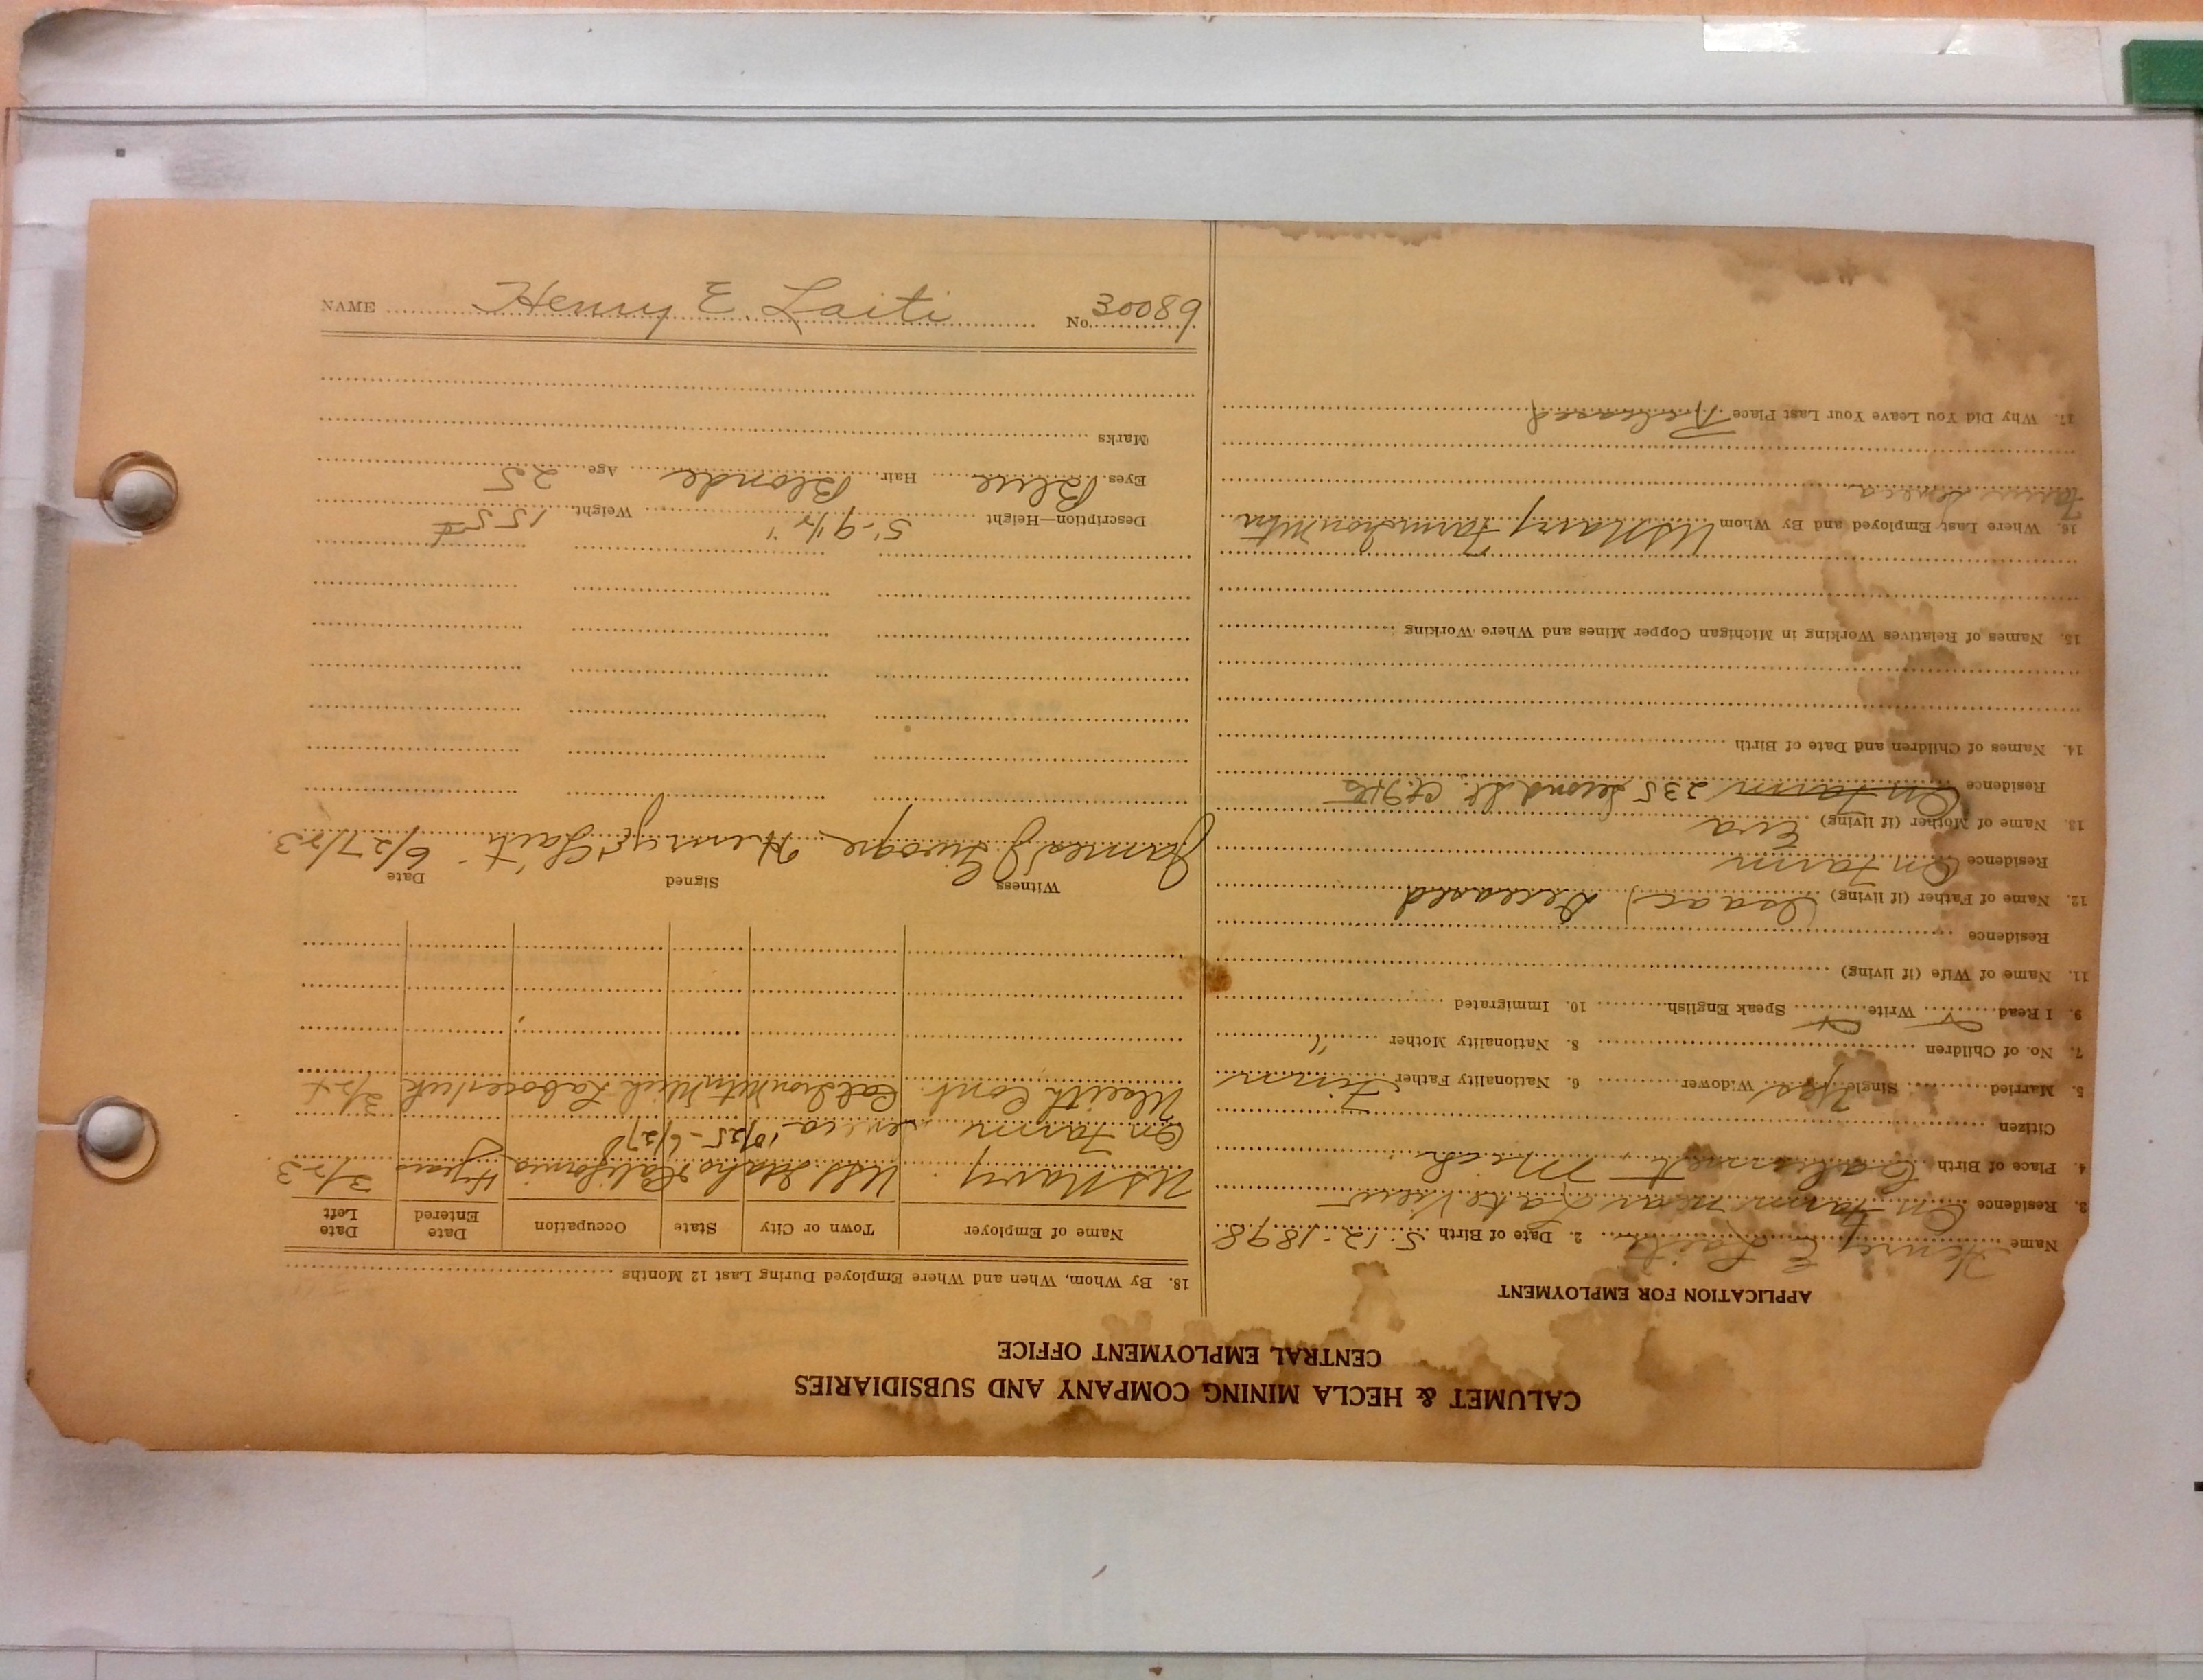 CALUMET & HECLA MINING COMPANY AND SUBSIDIARIES
CENTRAL EMPLOYMENT OFFICE
APPLICATION FOR EMPLOYMENT
Name Henry E Laiti 2. Date of Birth 5-12-1898
3. Residence On Farm near Lake View
4. Place of Birth Calumet Mich
Citizen
5. Married Single Yes Widower 6. Nationality Father Finn
7. No. of Children 8. Nationality Mother "
9. I Read Write Speak English 10. Immigrated
11. Name of Wife (if living)
Residence
12. Name of Father (if living) (Isaac) Deceased
Residence On Farm
13. Name of Mother (if living) Eva
Residence On Farm 235 Second St.
14. Names of Children and Date of Birth
15. Names of Relatives Working in Michigan Copper Mines and Where Working
16. Where Last Employed and By Whom US Navy Farm
Farm Seneca
17. Why Did You Leave Your Last Place Released
18. By Whom, When and Where Employed During Last 12 Months
Name of Employer Town or City State Occupation Date Entered Date Left
US Navy USS Idaho California 4 years 3/23
On Farm Seneca 10/25-6/27
Cont. Mich Laborer
Witness Signed Date
James J. Henry E Laiti 6/27/23
Description—Height 5'-9 1/2" Weight 155#
Eyes Blue Hair Blonde Age 25
Marks
NAME Henry E. Laiti No. 30089